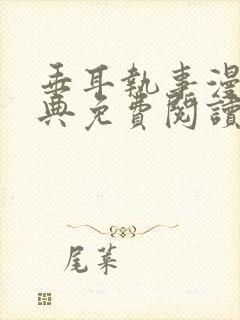 垂耳執事漫
典免費閱讀
尾葉